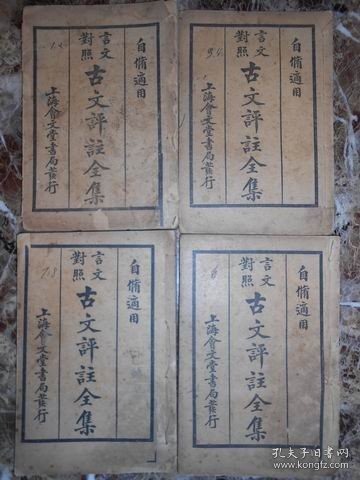 自脩適用
言文對照
古文評註全集
上海會文堂書局發行
1.2
自脩適用
言文對照
古文評註全集
上海會文堂書局發行
自脩適用
言文對照
古文評註全集
上海會文堂書局發行
7.8
自脩適用
言文對照
古文評註全集
上海會文堂書局發行
6
孔夫子旧书网